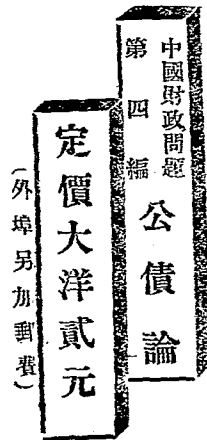 中國財政問題
第四編
公債論
定價大洋貳元
（外埠另加郵費）